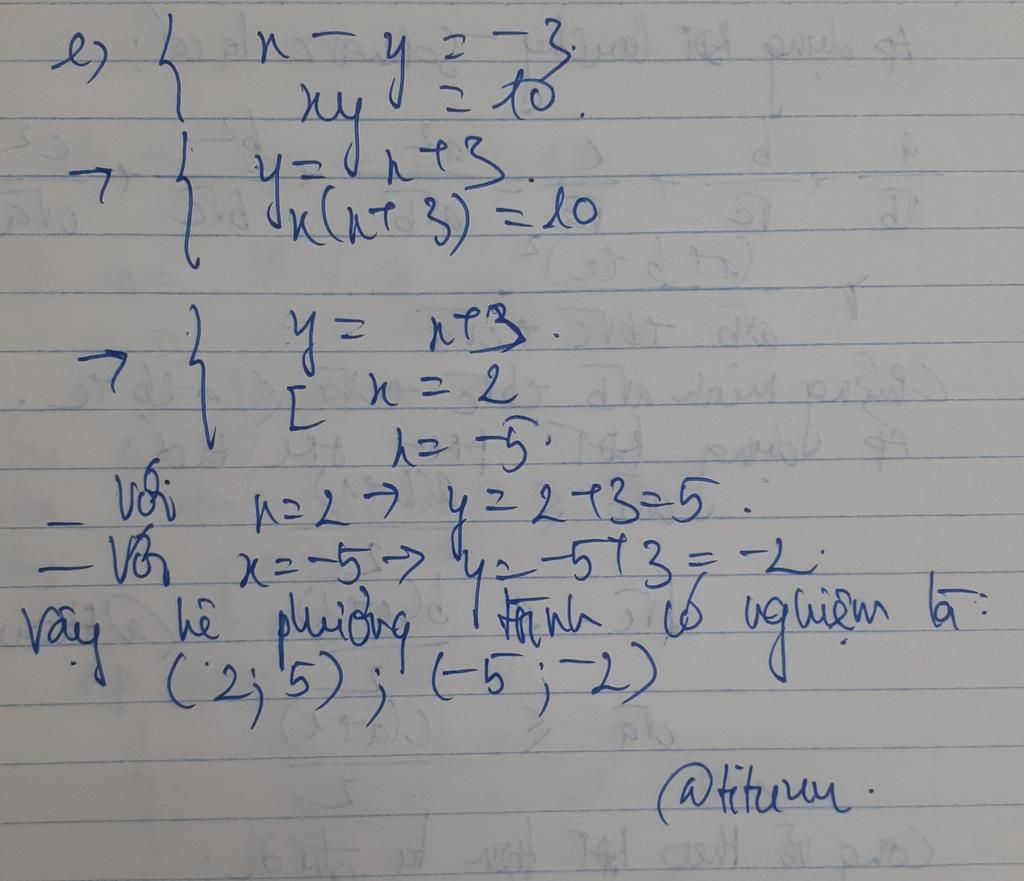 e) { x - y = -3.
xy = 10.
→ { y = x+3.
x(x+3) = 10
→ { y = x+3.
[ x = 2
x = -5.
- Với x=2 → y = 2+3=5.
- Với x=-5 → y=-5+3 = -2.
Vậy hệ phương trình có nghiệm là:
(2; 5) ; (-5; -2)